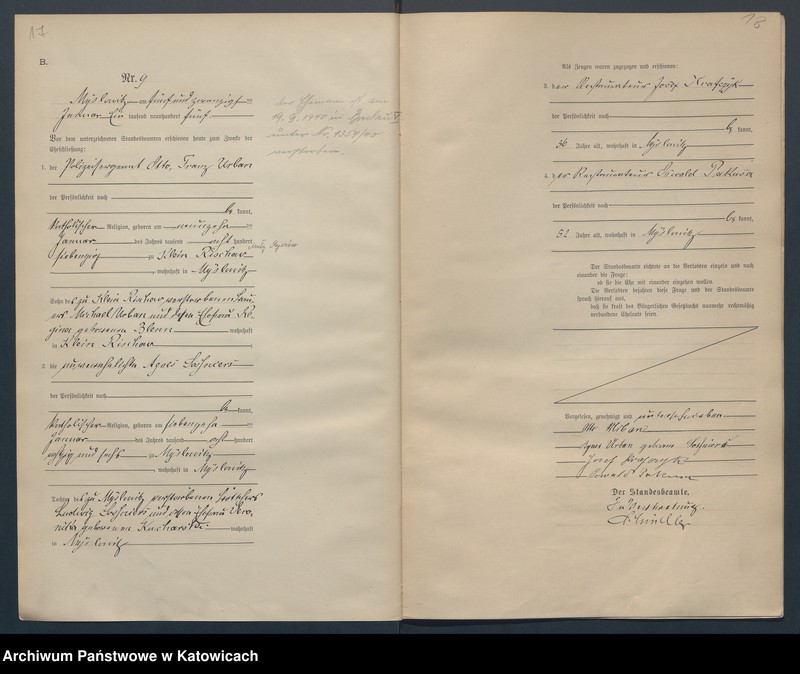 17
B.
Nr. 9
Myslowitz am fünf und zwanzigsten
Januar Ein tausend neunhundert fünf
Vor dem unterzeichneten Standesbeamten erschienen heute zum Zwecke der
Eheschließung:
1. der Polizeisergeant Otto, Franz Urban
der Persönlichkeit nach
be kannt,
katholischer Religion, geboren am neunzehn
Januar des Jahres tausend acht hundert
siebenzig zu Klein Rischow
, wohnhaft in Myslowitz
Sohn des zu Klein Rischow verstorbenen
Michael Urban und dessen Ehefrau Re-
gina geborenen wohnhaft
in Klein Rischow
2. die unverehelichte Agnes
der Persönlichkeit nach
be kannt,
katholischer Religion, geboren am siebenzehn
Januar des Jahres tausend acht hundert
achtzig und sechs zu Myslowitz
, wohnhaft in Myslowitz
Tochter des zu Myslowitz verstorbenen
Ludwig und dessen Ehefrau Vero-
nika geborenen wohnhaft
in Myslowitz
der Ehemann ist am
19. 9. 1940 in
unter Nr.
verstorben.
18
Als Zeugen waren zugezogen und erschienen:
3. der Restaurateur Josef Krafczyk
der Persönlichkeit nach
be kannt,
36 Jahre alt, wohnhaft in Myslowitz
4. der Restaurateur Oswald
der Persönlichkeit nach
be kannt,
52 Jahre alt, wohnhaft in Myslowitz
Der Standesbeamte richtete an die Verlobten einzeln und nach
einander die Frage:
ob sie die Ehe mit einander eingehen wollen.
Die Verlobten bejahten diese Frage und der Standesbeamte
sprach hierauf aus,
daß sie kraft des Bürgerlichen Gesetzbuchs nunmehr rechtmäßig
verbundene Eheleute seien.
Vorgelesen, genehmigt und unterschrieben
Otto Urban
Agnes Urban geborene
Josef Krafczyk
Oswald
Der Standesbeamte.
In Vertretung.